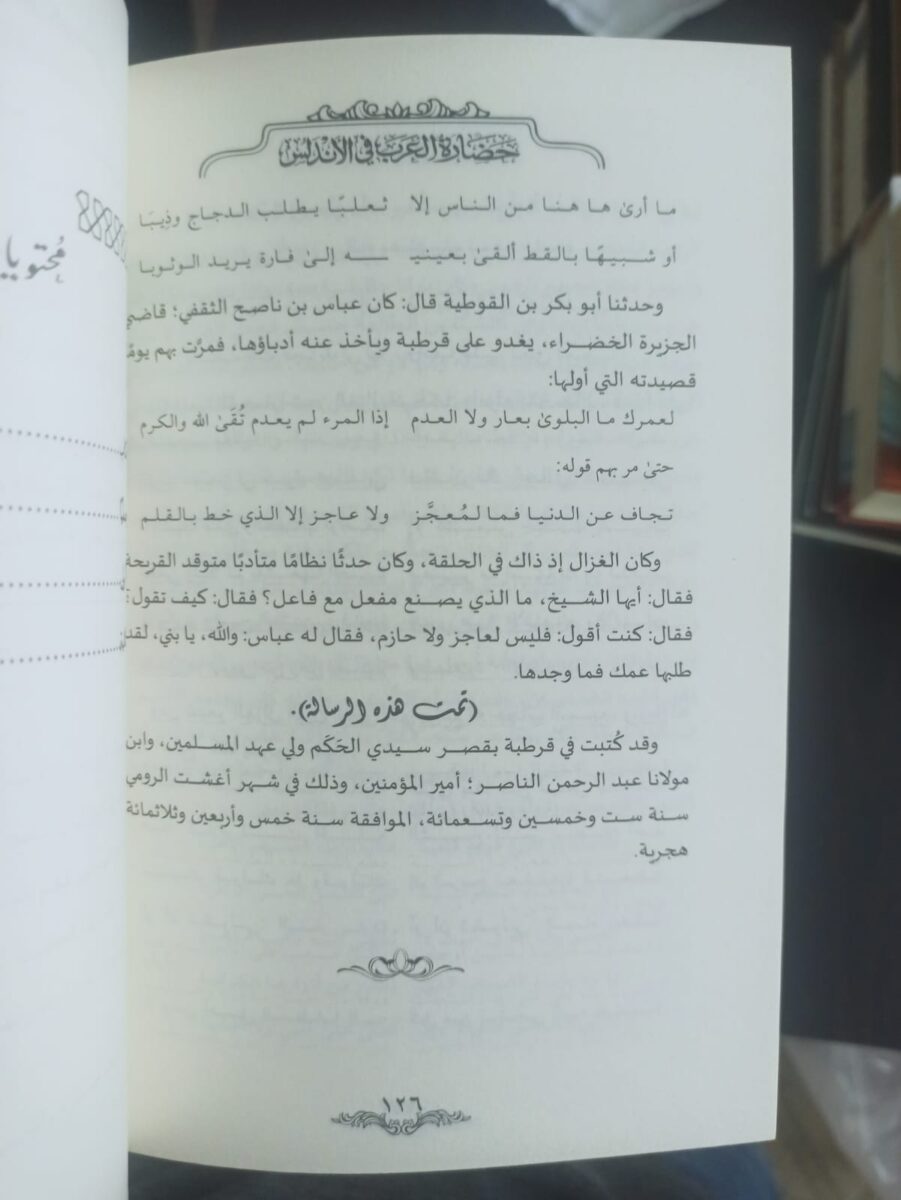 حضارة العرب في الأندلس
ما أرىٰ ها هنا من الناس إلا ثعلبًا يطلب الدجاج وذِيبَا
أو شبيهًا بالقط ألقىٰ بعينيـ ـه إلىٰ فارة يريد الوثوبا
وحدثنا أبو بكر بن القوطية قال: كان عباس بن ناصح الثقفي؛ قاضي
الجزيرة الخضراء، يغدو على قرطبة ويأخذ عنه أدباؤها، فمرَّت بهم يومًا
قصيدته التي أولها:
لعمرك ما البلوىٰ بعار ولا العدم إذا المرء لم يعدم تُقَىٰ الله والكرم
حتىٰ مر بهم قوله:
تجاف عن الدنيا فما لمُعجَّز ولا عاجز إلا الذي خط بالقلم
وكان الغزال إذ ذاك في الحلقة، وكان حدثًا نظامًا متأدبًا متوقد القريحة
فقال: أيها الشيخ، ما الذي يصنع مفعل مع فاعل؟ فقال: كيف تقول؟
فقال: كنت أقول: فليس لعاجز ولا حازم، فقال له عباس: والله، يا بني، لقد
طلبها عمك فما وجدها.
(تمت هذه الرسالة).
وقد كُتبت في قرطبة بقصر سيدي الحَكَم ولي عهد المسلمين، وابن
مولانا عبد الرحمن الناصر؛ أمير المؤمنين، وذلك في شهر أغشت الرومي
سنة ست وخمسين وتسعمائة، الموافقة سنة خمس وأربعين وثلاثمائة
هجرية.
١٢٦